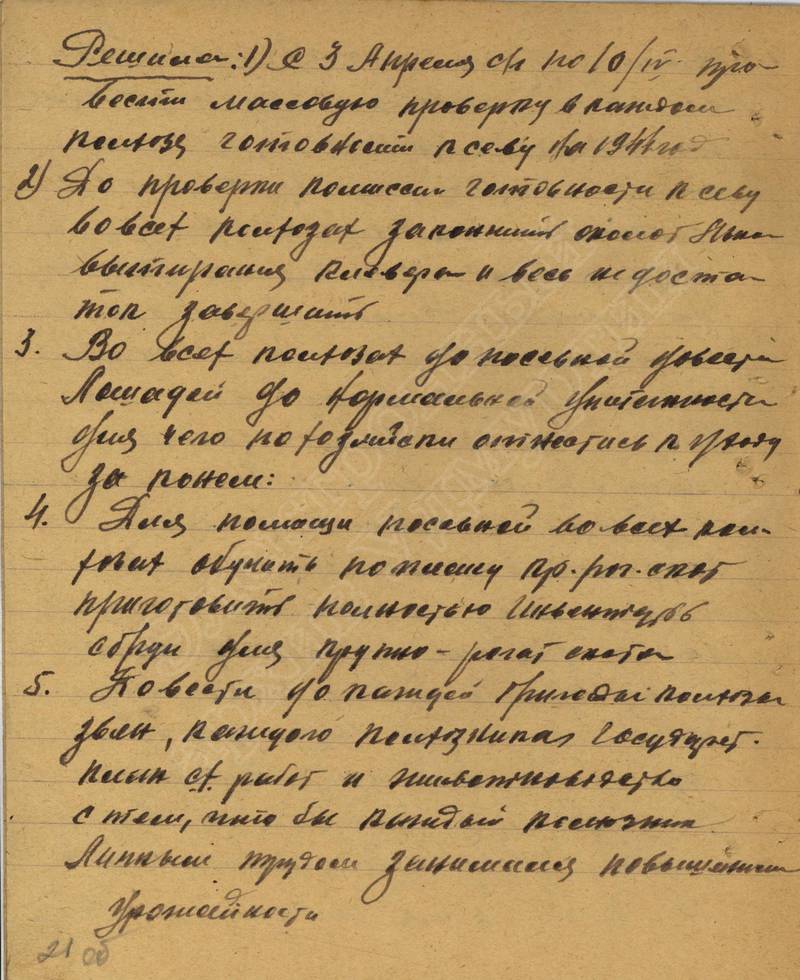 Решила: 1) С 3 Апреля с/г по 10/IV про-
вести массовую проверку в каждом
колхозе готовности к севу на 1944 год
2) До проверки комиссии готовности к севу
во всех колхозах закончить околот
вытирания клевера и весь недоста-
ток завершить
3. Во всех колхозах до посевной довести
Лошадей до нормальной упитанности
для чего по хозяйски отнестись к уходу
за конем:
4. Для помощи посевной во всех кол-
хозах обучить по плану кр. рог. скот
приготовить полностью Инвентарь
сбруи для крупно-рогат скота
5. Довести до каждой бригады колхоза
звен, каждого колхозника Государст.
план с/х работ и животноводства
с тем, что бы каждый колхозник
Личным трудом занимался повышением
Урожайности
21 об